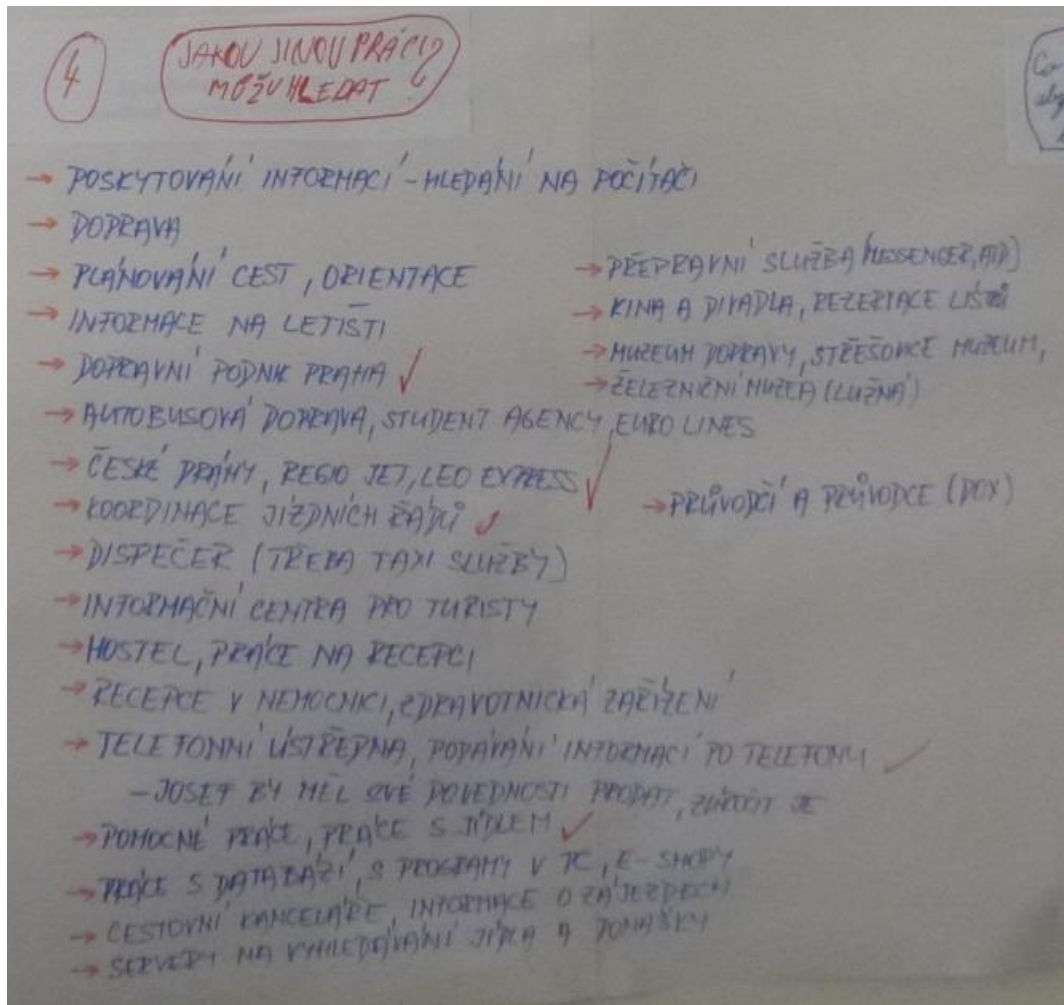 4
JAKOU JINOU PRÁCI?
MŮŽU HLEDAT
→ POSKYTOVÁNÍ INFORMACÍ - HLEDÁNÍ NA POČÍTAČI
→ DOPRAVA
→ PLÁNOVÁNÍ CEST, ORIENTACE
→ INFORMACE NA LETIŠTI
→ DOPRAVNÍ PODNIK PRAHA ✓
→ AUTOBUSOVÁ DOPRAVA, STUDENT AGENCY, EURO LINES
→ ČESKÉ DRÁHY, REGIO JET, LEO EXPRESS ✓
→ KOORDINACE JÍZDNÍCH ŘÁDŮ ✓
→ DISPEČER (TŘEBA TAXI SLUŽBY)
→ INFORMAČNÍ CENTRA PRO TURISTY
→ HOSTEL, PRÁCE NA RECEPCI
→ RECEPCE V NEMOCNICI, ZDRAVOTNICKÁ ZAŘÍZENÍ
→ TELEFONNÍ ÚSTŘEDNA, PODÁVÁNÍ INFORMACÍ PO TELEFONU ✓
- JOSEF BY MĚL SVÉ DOVEDNOSTI PRODAT, ZÚROČIT JE
→ POMOCNÉ PRÁCE, PRÁCE S JÍDLEM ✓
→ PRÁCE S DATABÁZÍ, S PROGRAMY V PC, E-SHOPY
→ CESTOVNÍ KANCELÁŘE, INFORMACE O ZÁJEZDECH
→ SERVERY NA VYHLEDÁVÁNÍ JÍDLA A DONÁŠKY
→ PŘEPRAVNÍ SLUŽBA (MESSENGER, ATD)
→ KINA A DIVADLA, REZERVACE LÍSTKŮ
→ MUZEUM DOPRAVY, STŘEŠOVICE MUZEUM,
→ ŽELEZNIČNÍ MUZEA (LUŽNÁ)
→ PRŮVODČÍ A PRŮVODCE (DOX)
Co